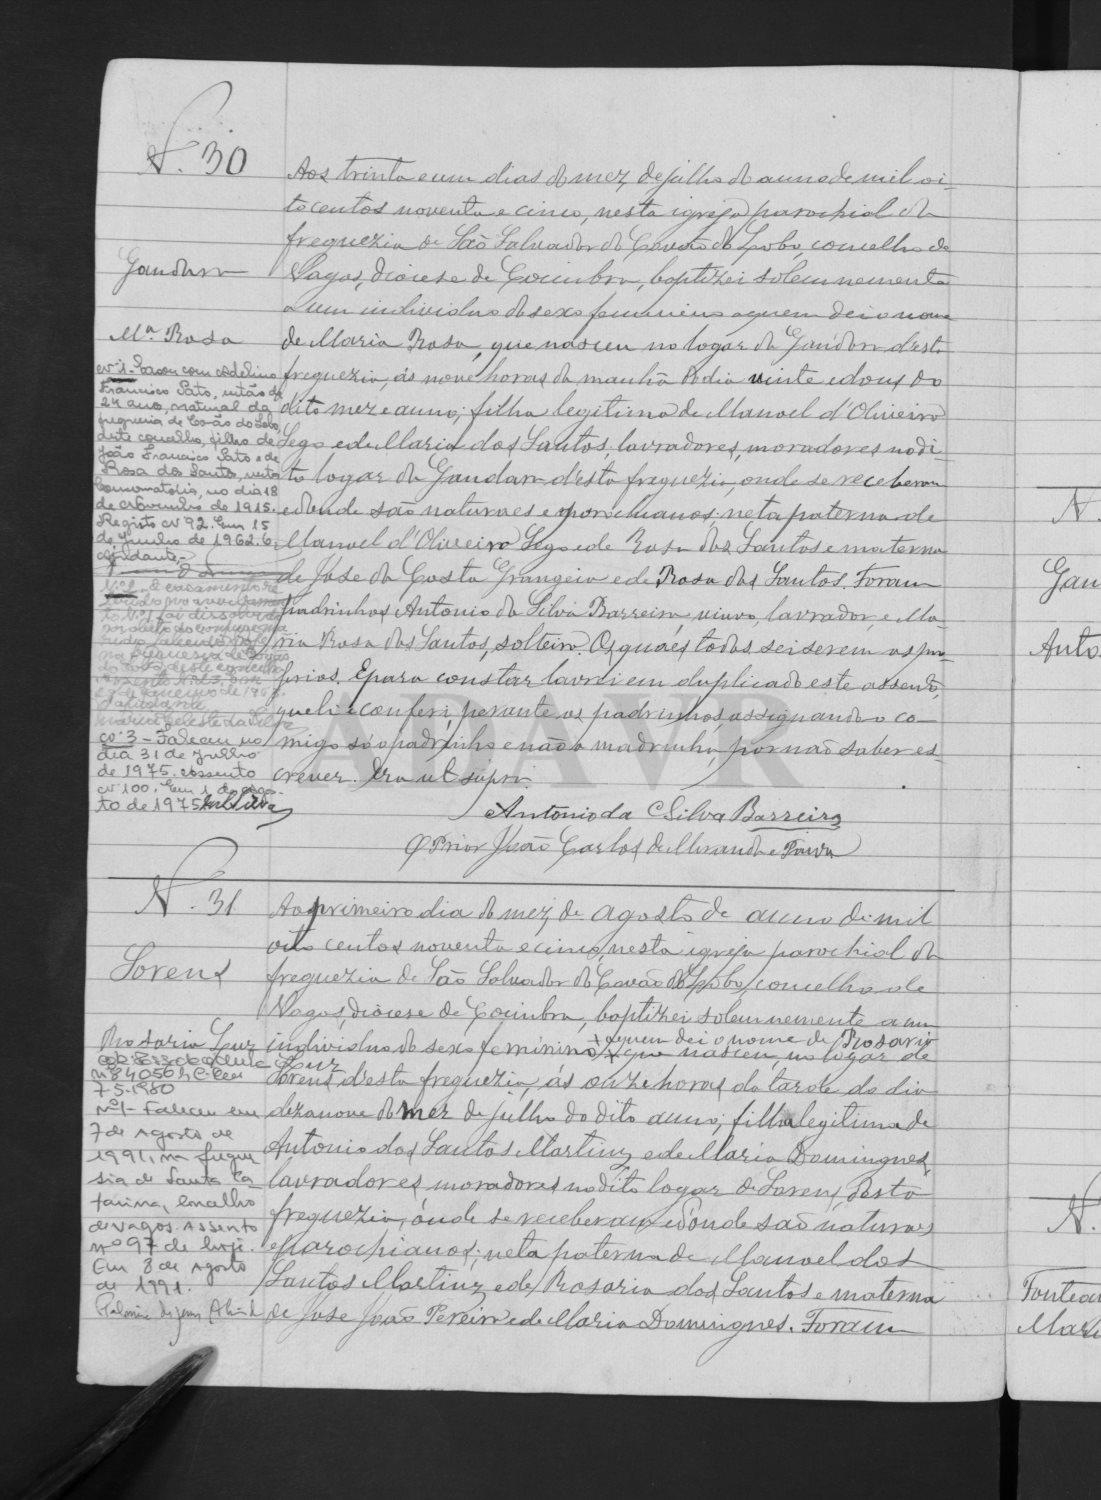 N. 30
Gandara
Mª. Rosa
Aos trinta e um dias do mez de julho do anno de mil oi-
to centos noventa e cinco, nesta igreja parochial da
freguezia de São Salvador do Covão do Lobo, concelho de
Vagos, diocese de Coimbra, baptizei solemnemente
a um individuo do sexo femenino a quem dei o nome
de Maria Rosa, que nasceu no logar da Gandara desta
freguezia, ás nove horas da manhã do dia vinte e dous do
dito mez e anno; filha legitima de Manoel d'Oliveira
Sego e de Maria dos Santos, lavradores, moradores no di-
to logar da Gandara d'esta freguezia, onde se receberam
e d'onde são naturaes e parochianos; neta paterna de
Manoel d'Oliveira Sego e de Rosa dos Santos e materna
de Jose da Costa Grangeia e de Rosa dos Santos. Foram
padrinhos Antonio da Silva Barreira, viuvo, lavrador e Ma-
ria Rosa dos Santos, solteira. Os quaes todos sei serem os pro-
prios. E para constar lavrei em duplicado este assento,
que li e conferi perante os padrinhos, assignando o co-
migo só o padrinho e não a madrinha, por não saber es-
crever. Era ut supra.
Antonio da Silva Barreira
O Prior João Carlos de Miranda e Paiva
Nº 1. Casou com Adelino
Francisco Pato, então de
24 anos, natural da
freguesia de Covão do Lobo,
deste concelho, filho de
João Francisco Pato e de
Rosa dos Santos, nesta
Conservatória, no dia 18
de Novembro de 1915.
Registo Nº 92. Em 15
de Junho de 1962. O
ajudante,
Nº 2. O casamento re-
ferido no averbamen-
to Nº 1 foi dissolvido
por óbito do conjuge ma-
rido, falecido
na freguesia de Covão
do Lobo, deste concelho.
de Janeiro de 196
O ajudante
Maria Celeste da Silva
Nº 3 - Faleceu no
dia 31 de Julho
de 1975. Assento
Nº 100. Em 1 de Agos-
to de 1975
ADAVR
N. 31
Lorens
Rosaria Luz
nº 84056
7-5-1980
Nº 1 - Faleceu em
7 de Agosto de
1991, na fregue
sia de Santa Ca-
tarina, concelho
de Vagos. Assento
nº 97 de hoje.
Em 8 de Agosto
de 1991.
Ao primeiro dia do mez de agosto de anno de mil
oito centos noventa e cinco, nesta igreja parochial da
freguezia de São Salvador do Covão do Lobo, concelho de
Vagos, diocese de Coimbra, baptizei solemnemente a um
individuo do sexo feminino, + a quem dei o nome de Rosario
Luz + que nasceu no logar de
Lorens, d'esta freguezia, ás onze horas da tarde do dia
dezanove do mez de julho do dito anno; filha legitima de
Antonio dos Santos Martins e de Maria Domingues,
lavradores, moradores no dito logar de Lorens, desta
freguezia, onde se receberam e d'onde são naturaes
e parochianos; neta paterna de Manoel dos
Santos Martins e de Rosaria dos Santos e materna
de Jose João Pereira e de Maria Domingues. Foram
N.
Gan
Anto
N.
Fontean
Mari